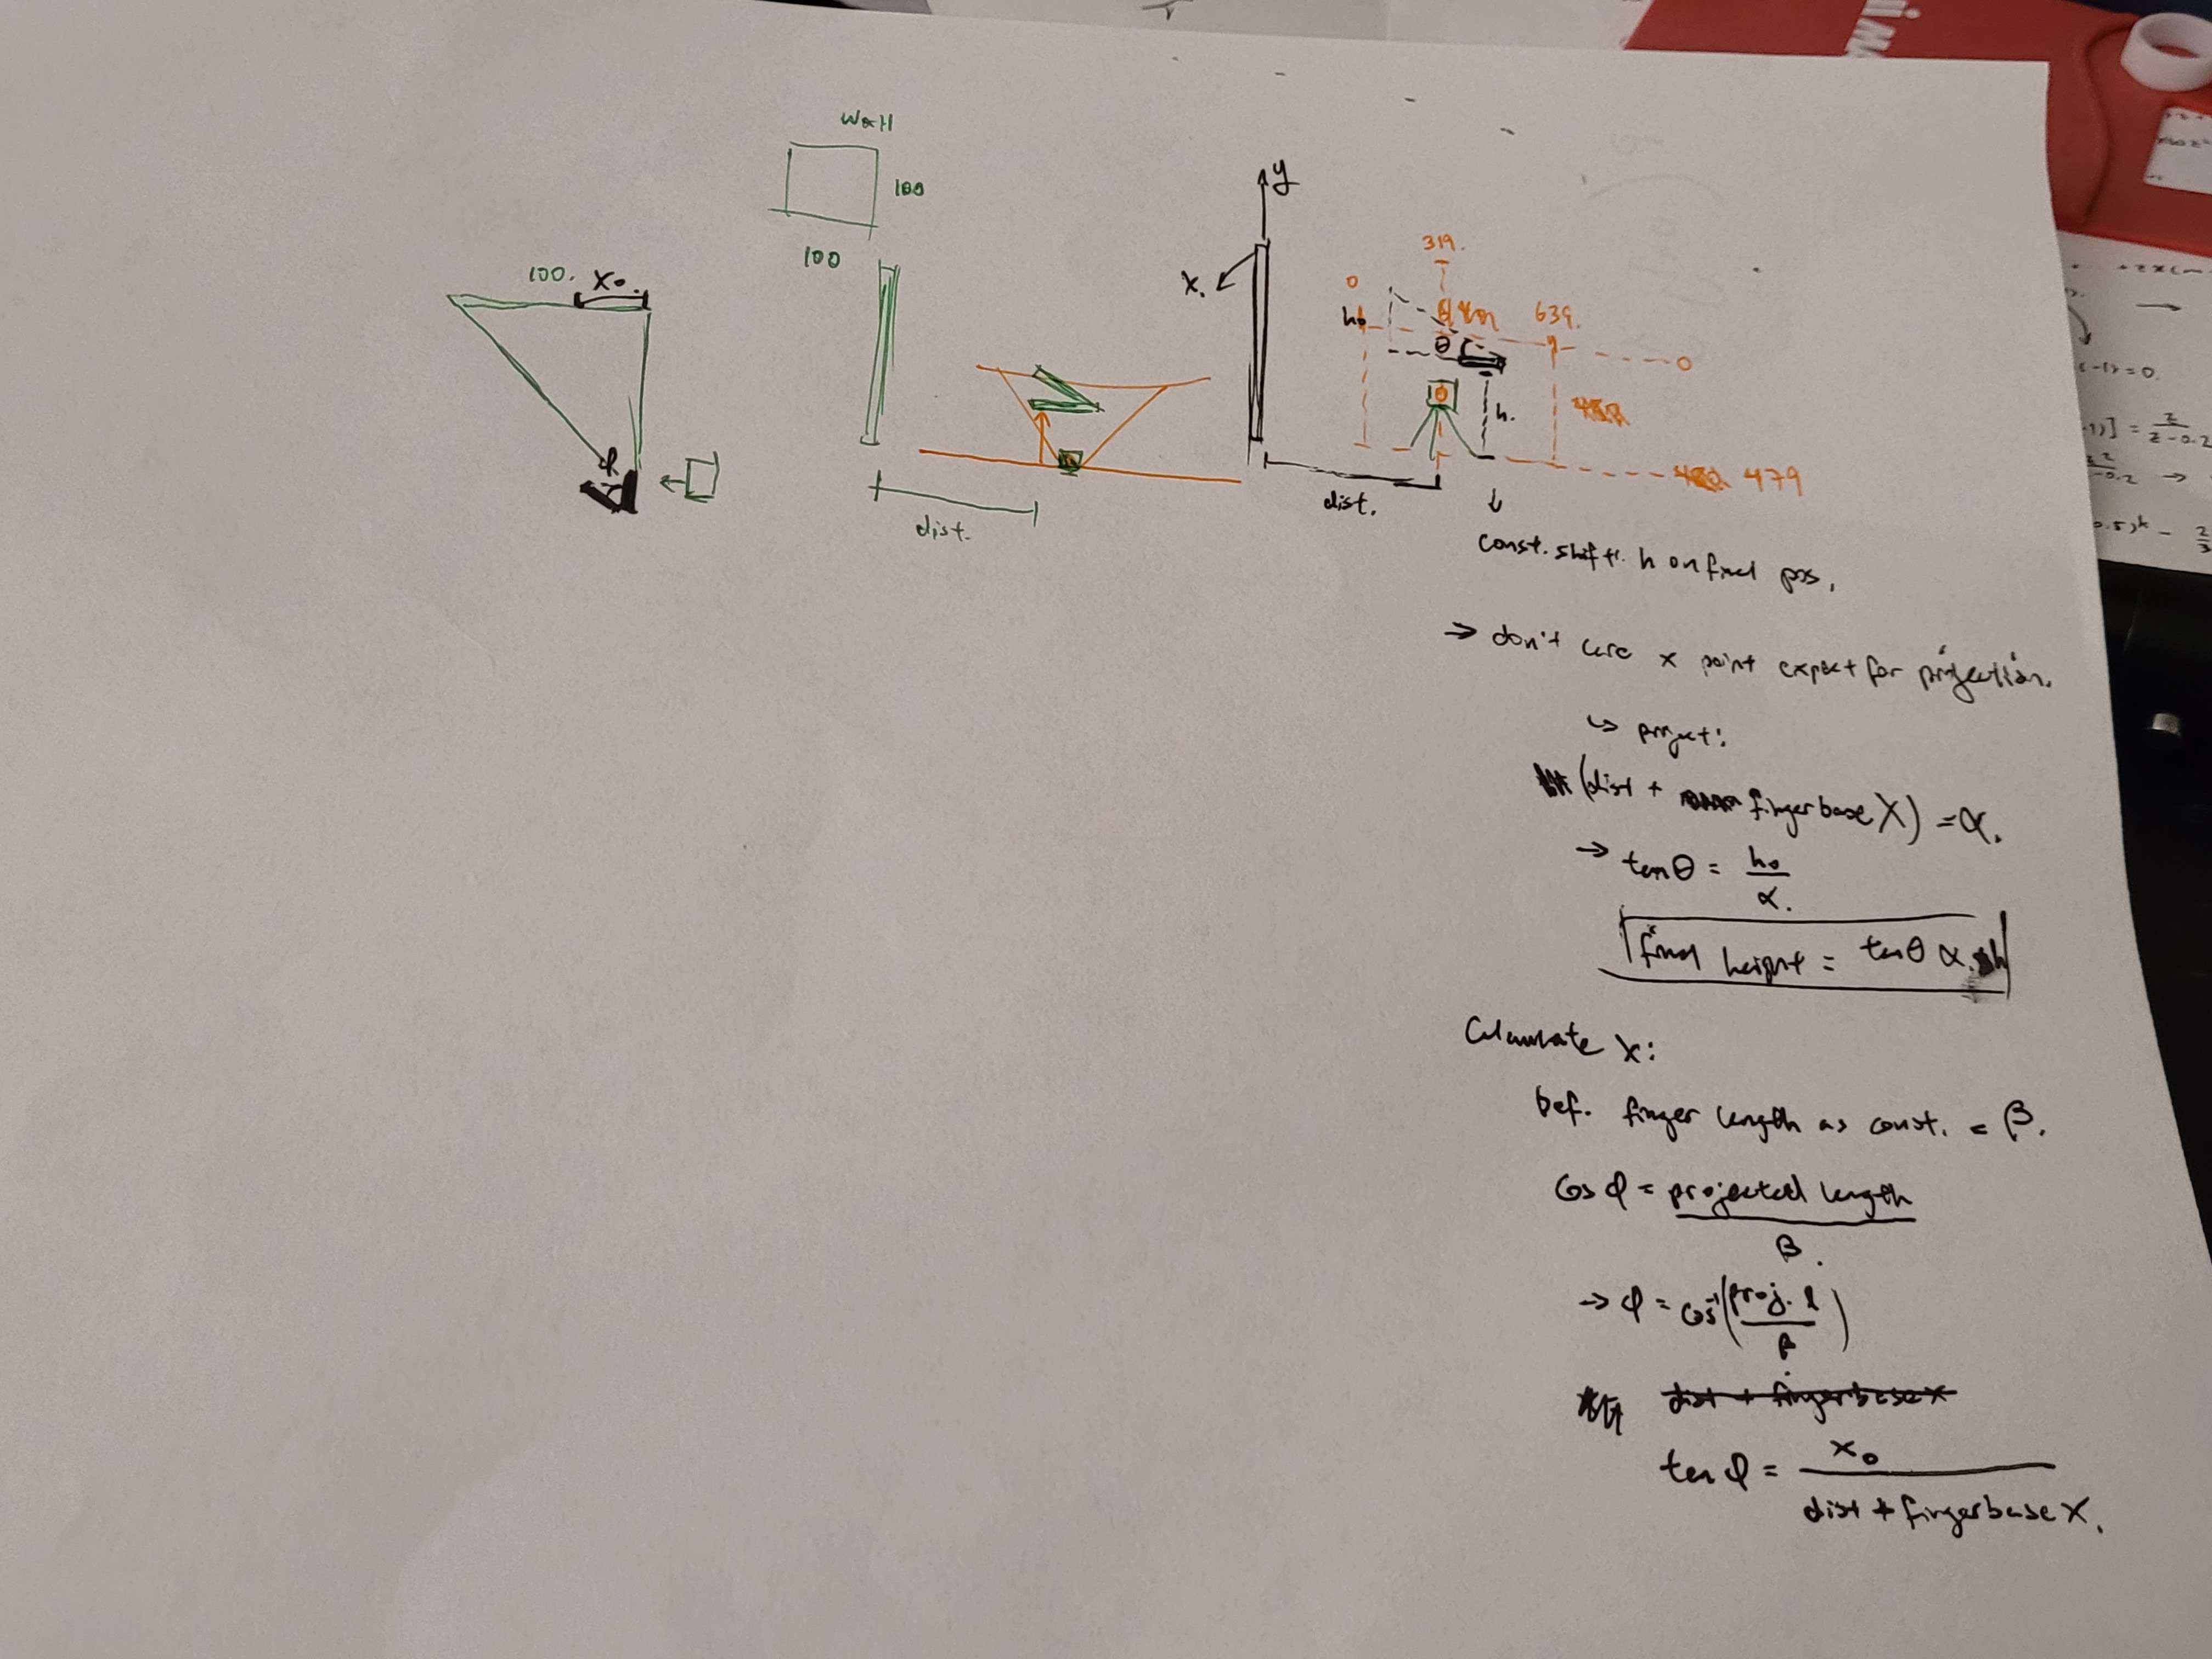 Wall
100
100
100. X₀.
φ
dist.
y
X.
319.
0
639.
h₀
θ
0
h.
479
dist.
const. shift. h on final pos.
→ don't care x point expect for projection.
↳ project:
(dist + fingerbase X) = α.
→ tan θ = h₀ / α.
final height = tan θ α. h
Calculate X:
Def. finger length as const. = β.
cos φ = projected length / β.
→ φ = cos⁻¹(proj. l / β)
dist + fingerbase X
tan φ = x₀ / dist + fingerbase X.
(-1) = 0.
-1)] = z / z-0.2
→
0.5)ᵏ -